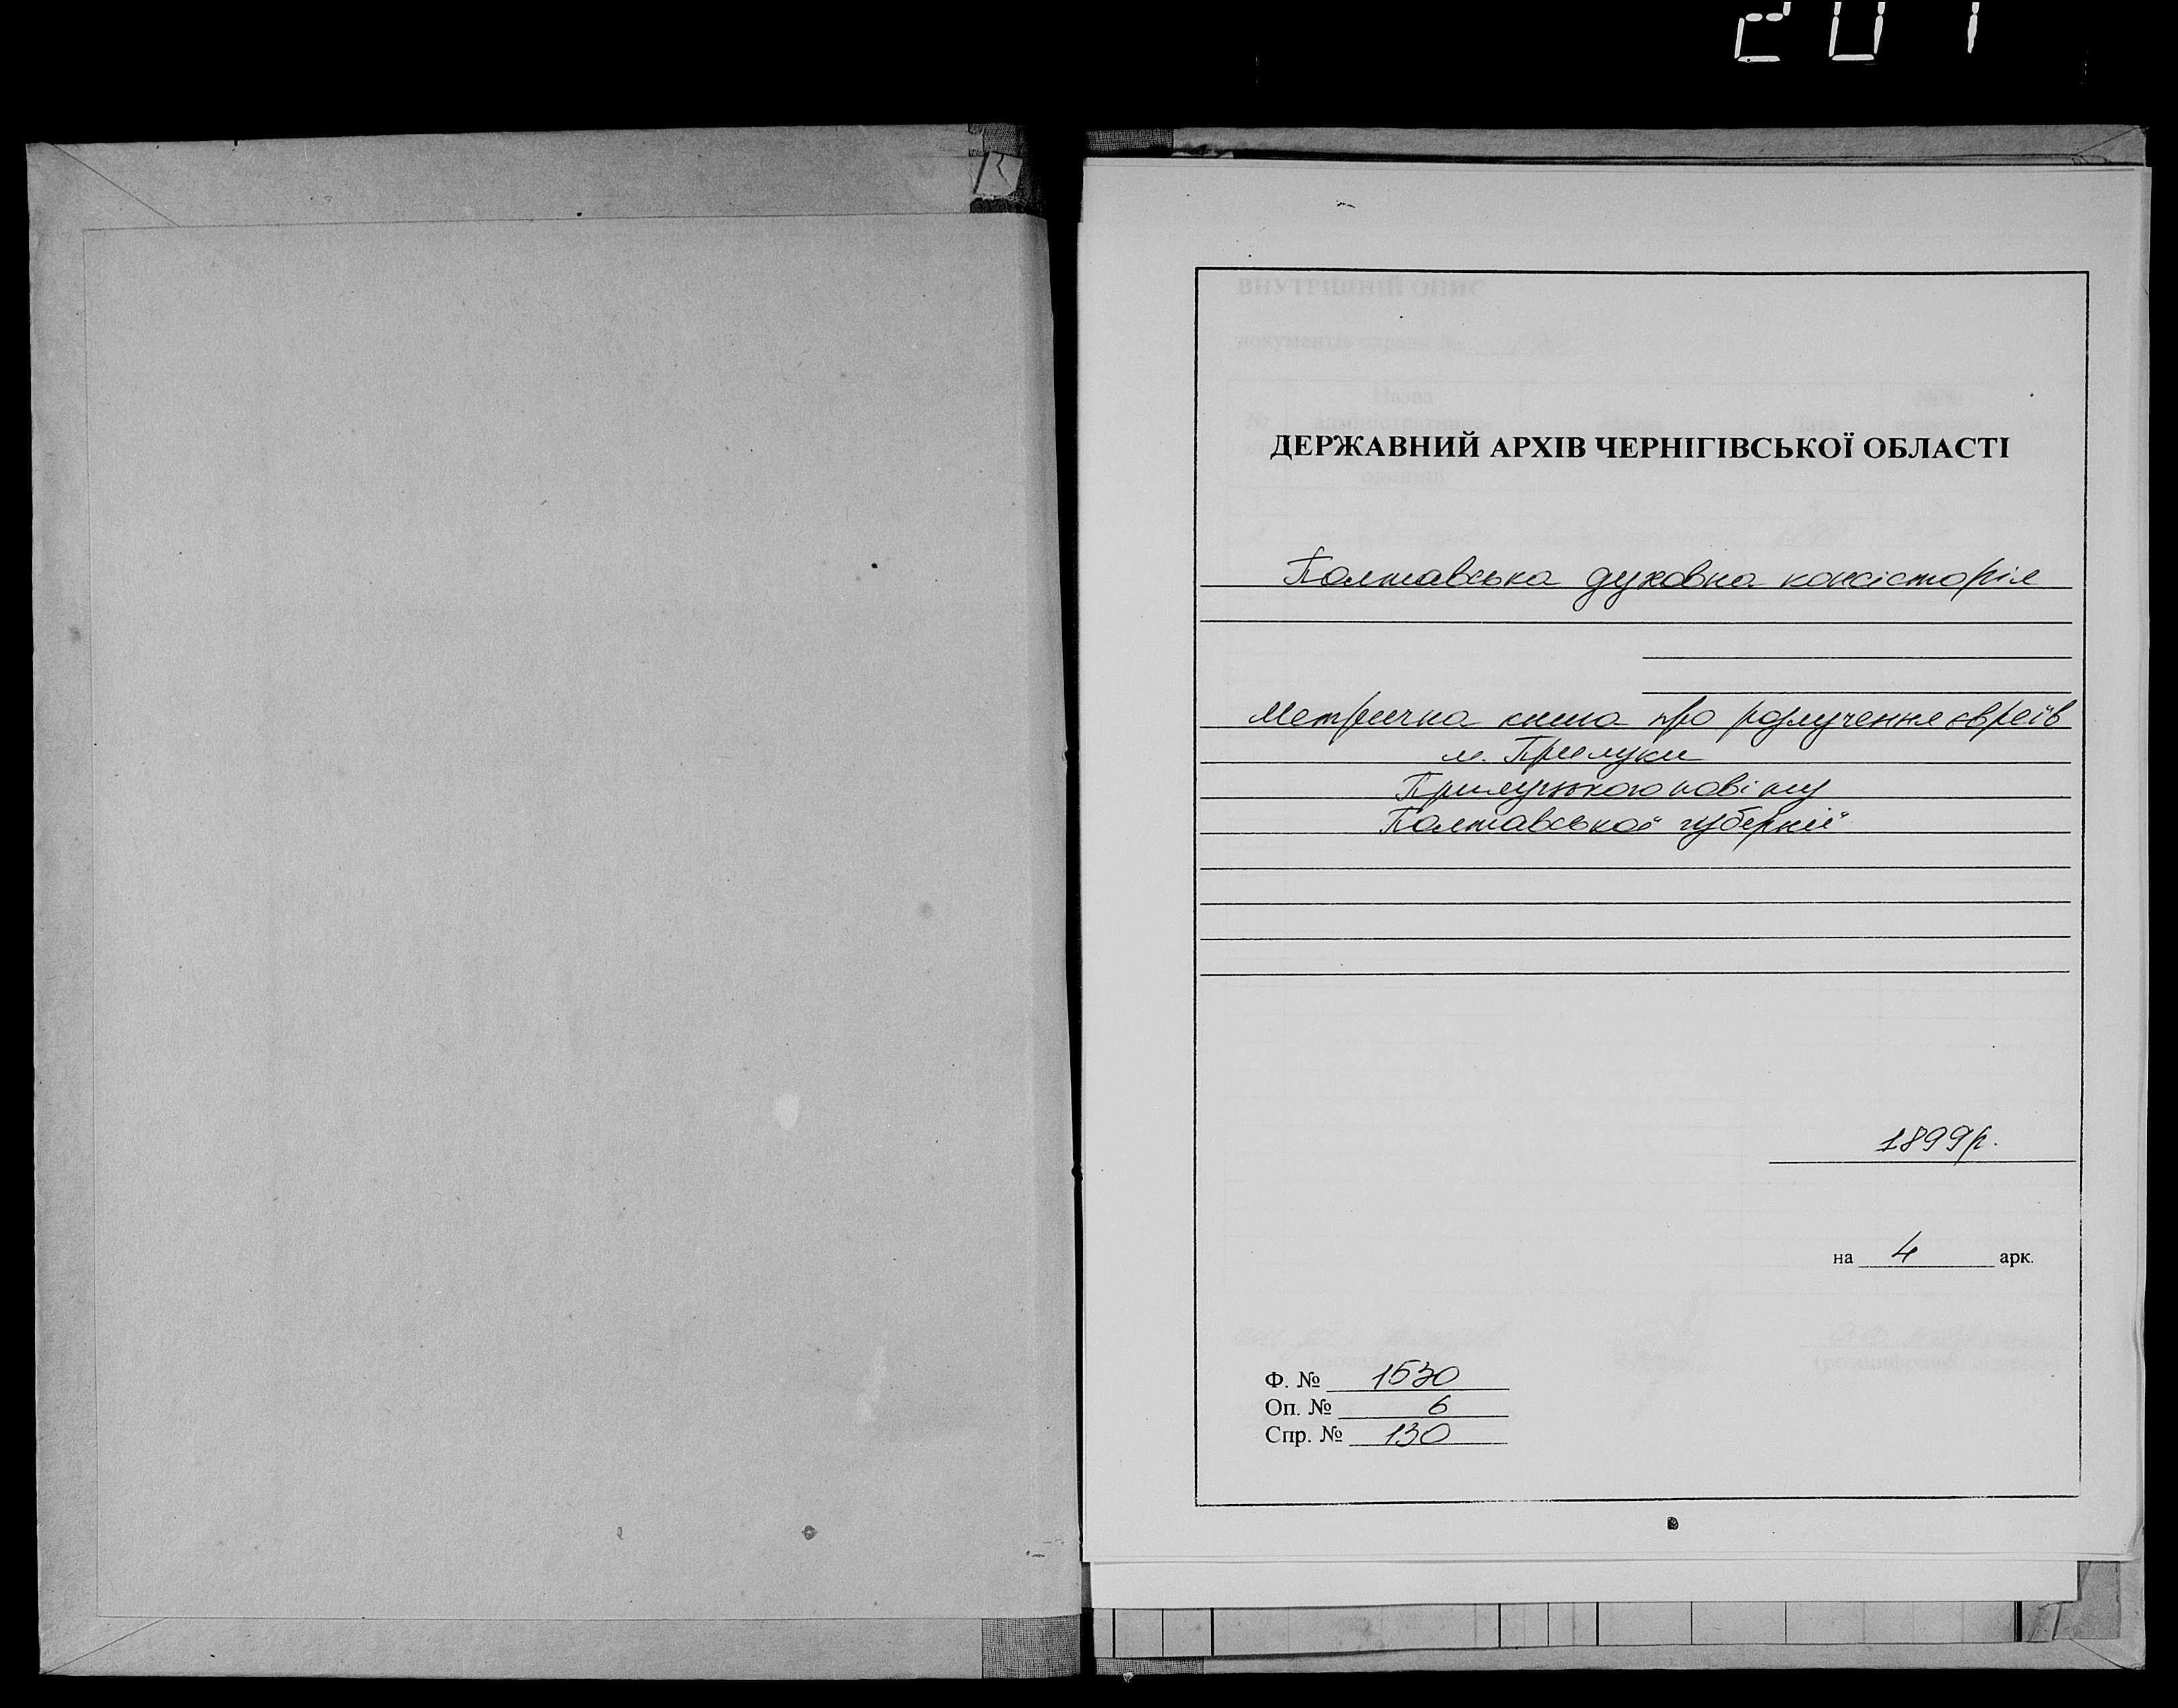 201
ДЕРЖАВНИЙ АРХІВ ЧЕРНІГІВСЬКОЇ ОБЛАСТІ
Полтавська духовна консисторія
Метрична книга про розлучення євреїв
м. Прилуки
Прилуцького повіту
Полтавської губернії
1899р.
на 4 арк.
Ф. № 1530
Оп. № 6
Спр. № 130